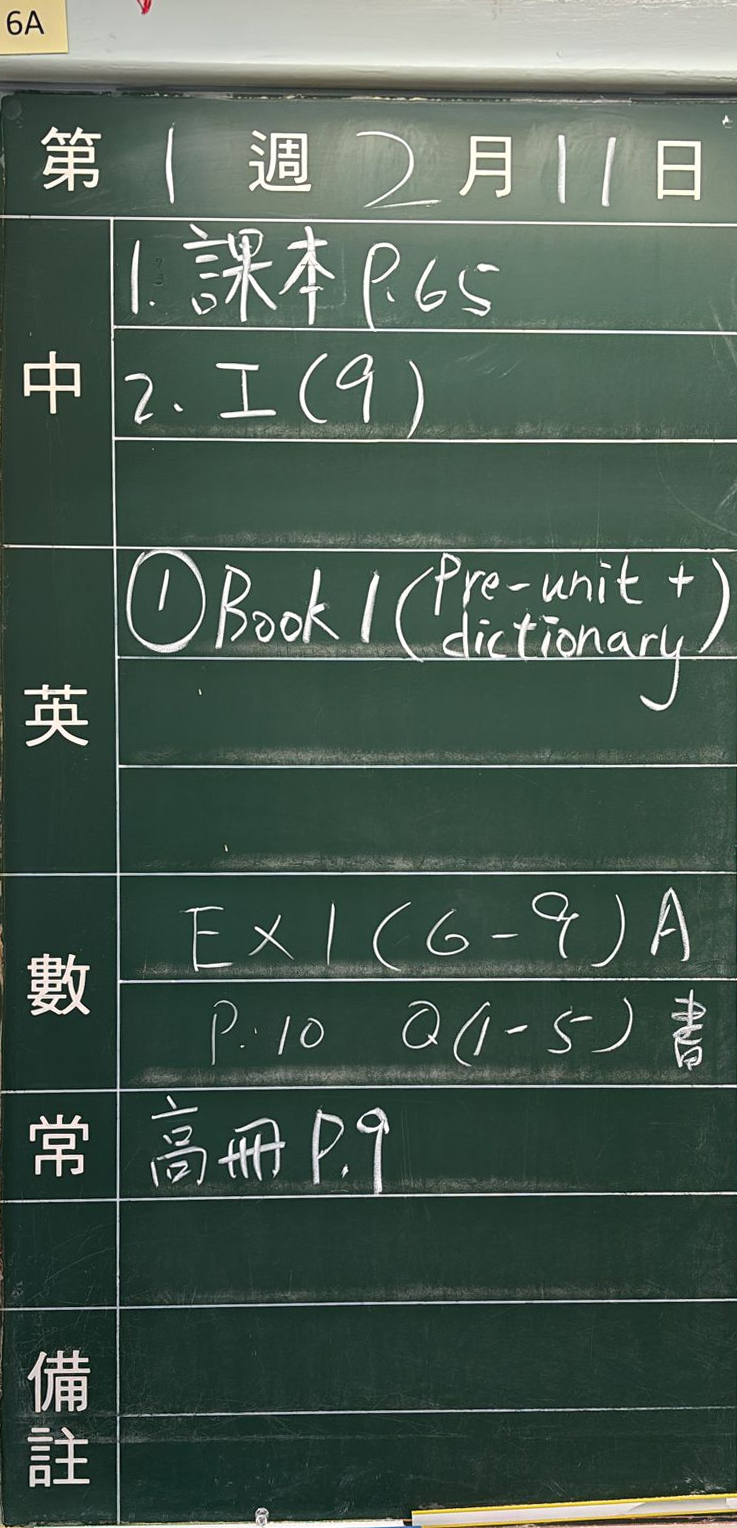 6A
第 1 週 2 月 11 日
中
1. 課本 P.65
2. 工(9)
英
① Book 1 (Pre-unit + dictionary)
數
Ex 1 (6-9) A
P.10 Q(1-5) 書
常
高冊 P.9
備註